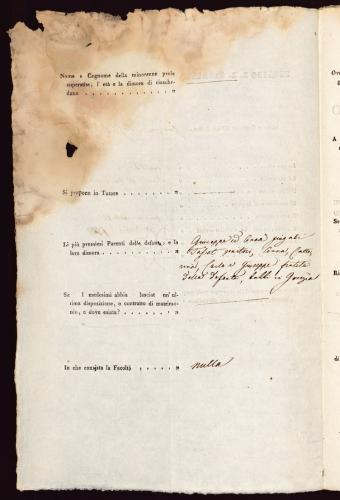 Nome e Cognome della minorenne prole
superstite, l' età e la dimora di ciasche-
duno . . . . . . . . . . . . „
Si propone in Tutore . . . . . . . „
Li più prossimi Parenti della defunta, e la Giuseppe ed Anna
loro dimora . . . . . . . . . . „ genitori, Anna, Catte-
rina, Carlo e Giuseppe fratelli
defunto, tutti in Gorizia
Se i medesimi abbia lasciat un' ul-
tima disposizione, o contratto di matrimo-
nio, e dove esista? . . . . . . . „
In che consista la Facoltà . . . . . . „ nulla